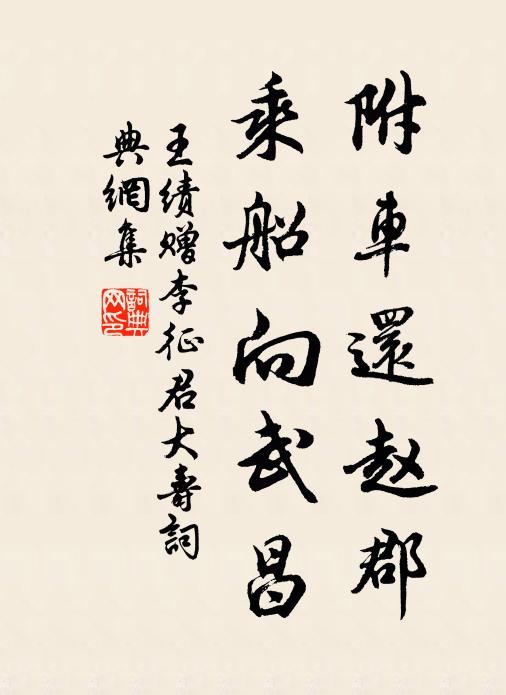 附車還赵郡
乘船向武昌
王绩赠李征君大壽詞
典網集
詞典網印